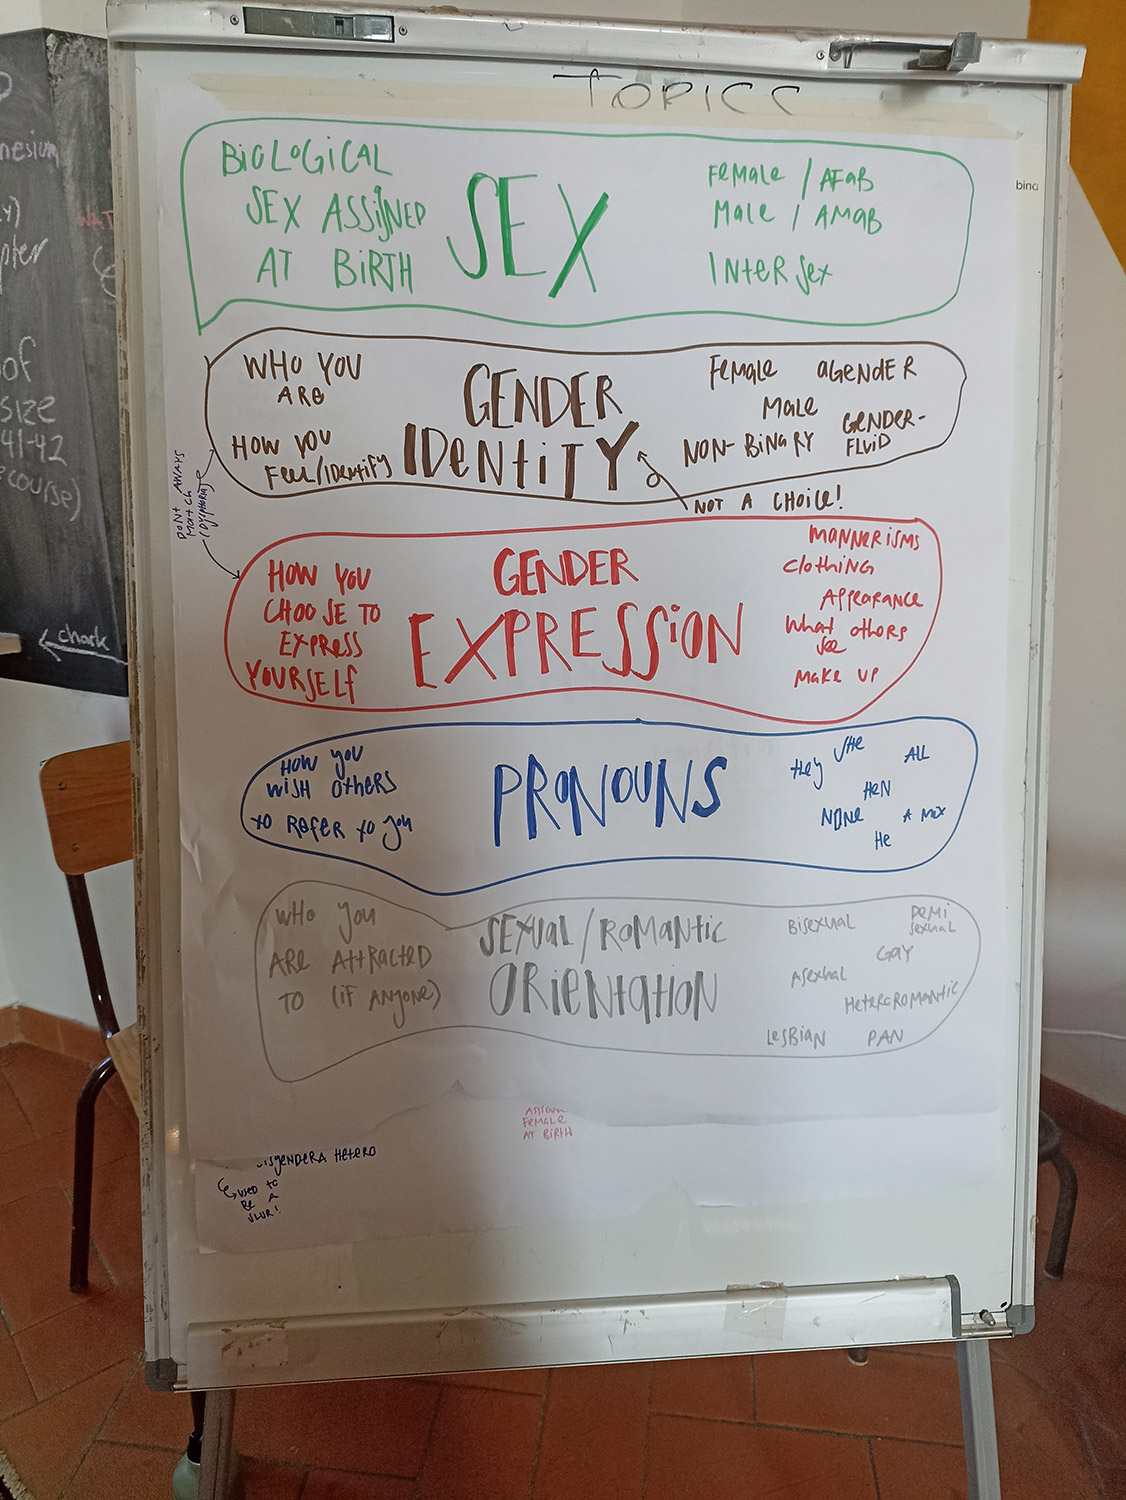 TOPICS
BiOLOGiCAL
SEX ASSiGNED
AT BiRTH
SEX
FeMALe / AFaB
MALe / AMAB
INterSex
WHO YOU
ARe
HOW YOU
Feel/IDentify
GENDER
IDeNtiTY
FeMALe aGeNdER
MALe
NON-BiNARY GENDER-
FLUiD
NOT A CHOiCE!
DONT AWAYS
MatCH
HOW YOU
CHOOSE TO
EXPRESS
YOURSELf
GENDER
EXPRESSiON
MANNERiSMS
ClotHiNG
APPeARANCe
What otHeRs
See
MAKe UP
HOW YOU
WiSH OtHeRS
to ReFeR to You
PRONOUNS
tHeY SHe ALL
HeN
NONe A Mix
He
WHo You
ARe AttRACteD
TO (iF ANYone)
SeXUAL/ROMANTiC
ORieNtAtiON
BiSeXUAL DeMi
SeXUAL
GAY
ASeXUAL
HeteROROMANtiC
LeSBiAN PAN
FeMALe
AT BiRtH
HeteRO
USeD tO
Be A
SLUR!
nesium
of
size
41-42
course)
chark
bina